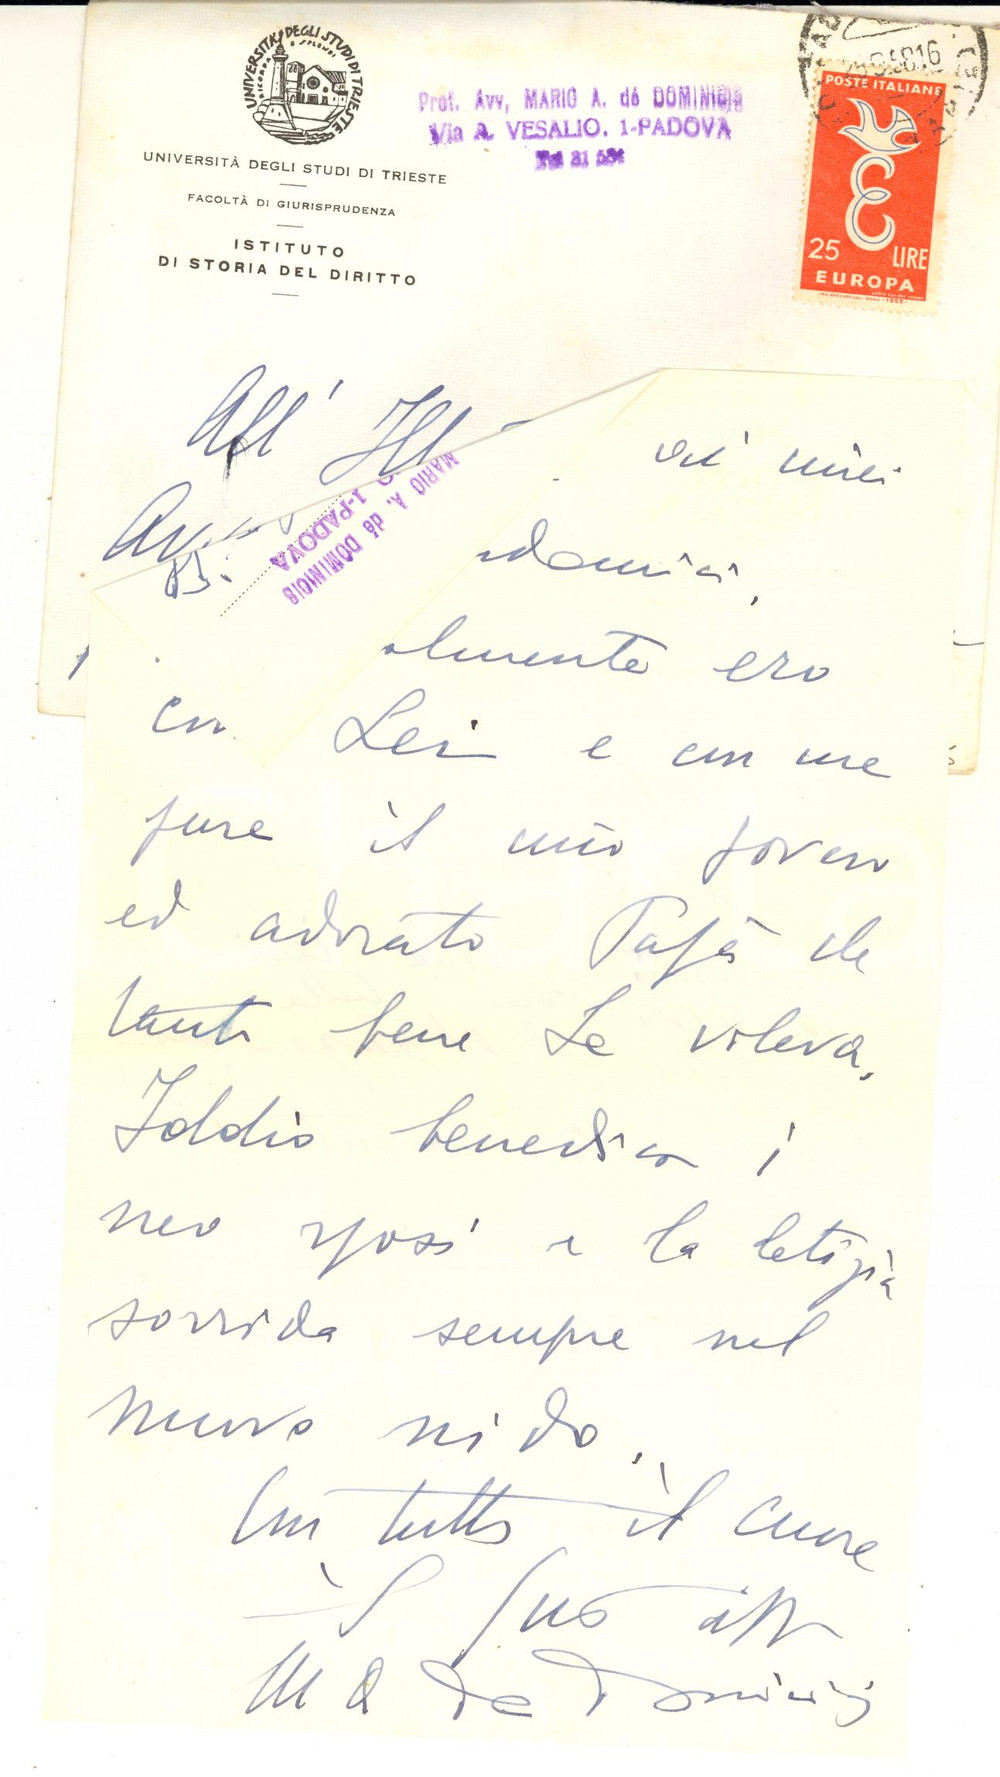 UNIVERSITA' DEGLI STUDI DI TRIESTE
UNIVERSITÀ DEGLI STUDI DI TRIESTE
FACOLTÀ DI GIURISPRUDENZA
ISTITUTO
DI STORIA DEL DIRITTO
Prof. Avv, MARIO A. dé DOMINICIS
Via A. VESALIO. 1-PADOVA
Tel 31
POSTE ITALIANE
25 LIRE
EUROPA
All' Ill
Avv
MARIO A. dé DOMINICIS
1-PADOVA
miei
almente ero
con Lei e con me
pure il mio povero
ed adorato Papà che
tanto bene Le voleva.
Iddio benedica i
neo sposi e la letizia
sorrida sempre nel
nuovo nido.
Con tutto il cuore
il Suo aff
M A de Dominicis